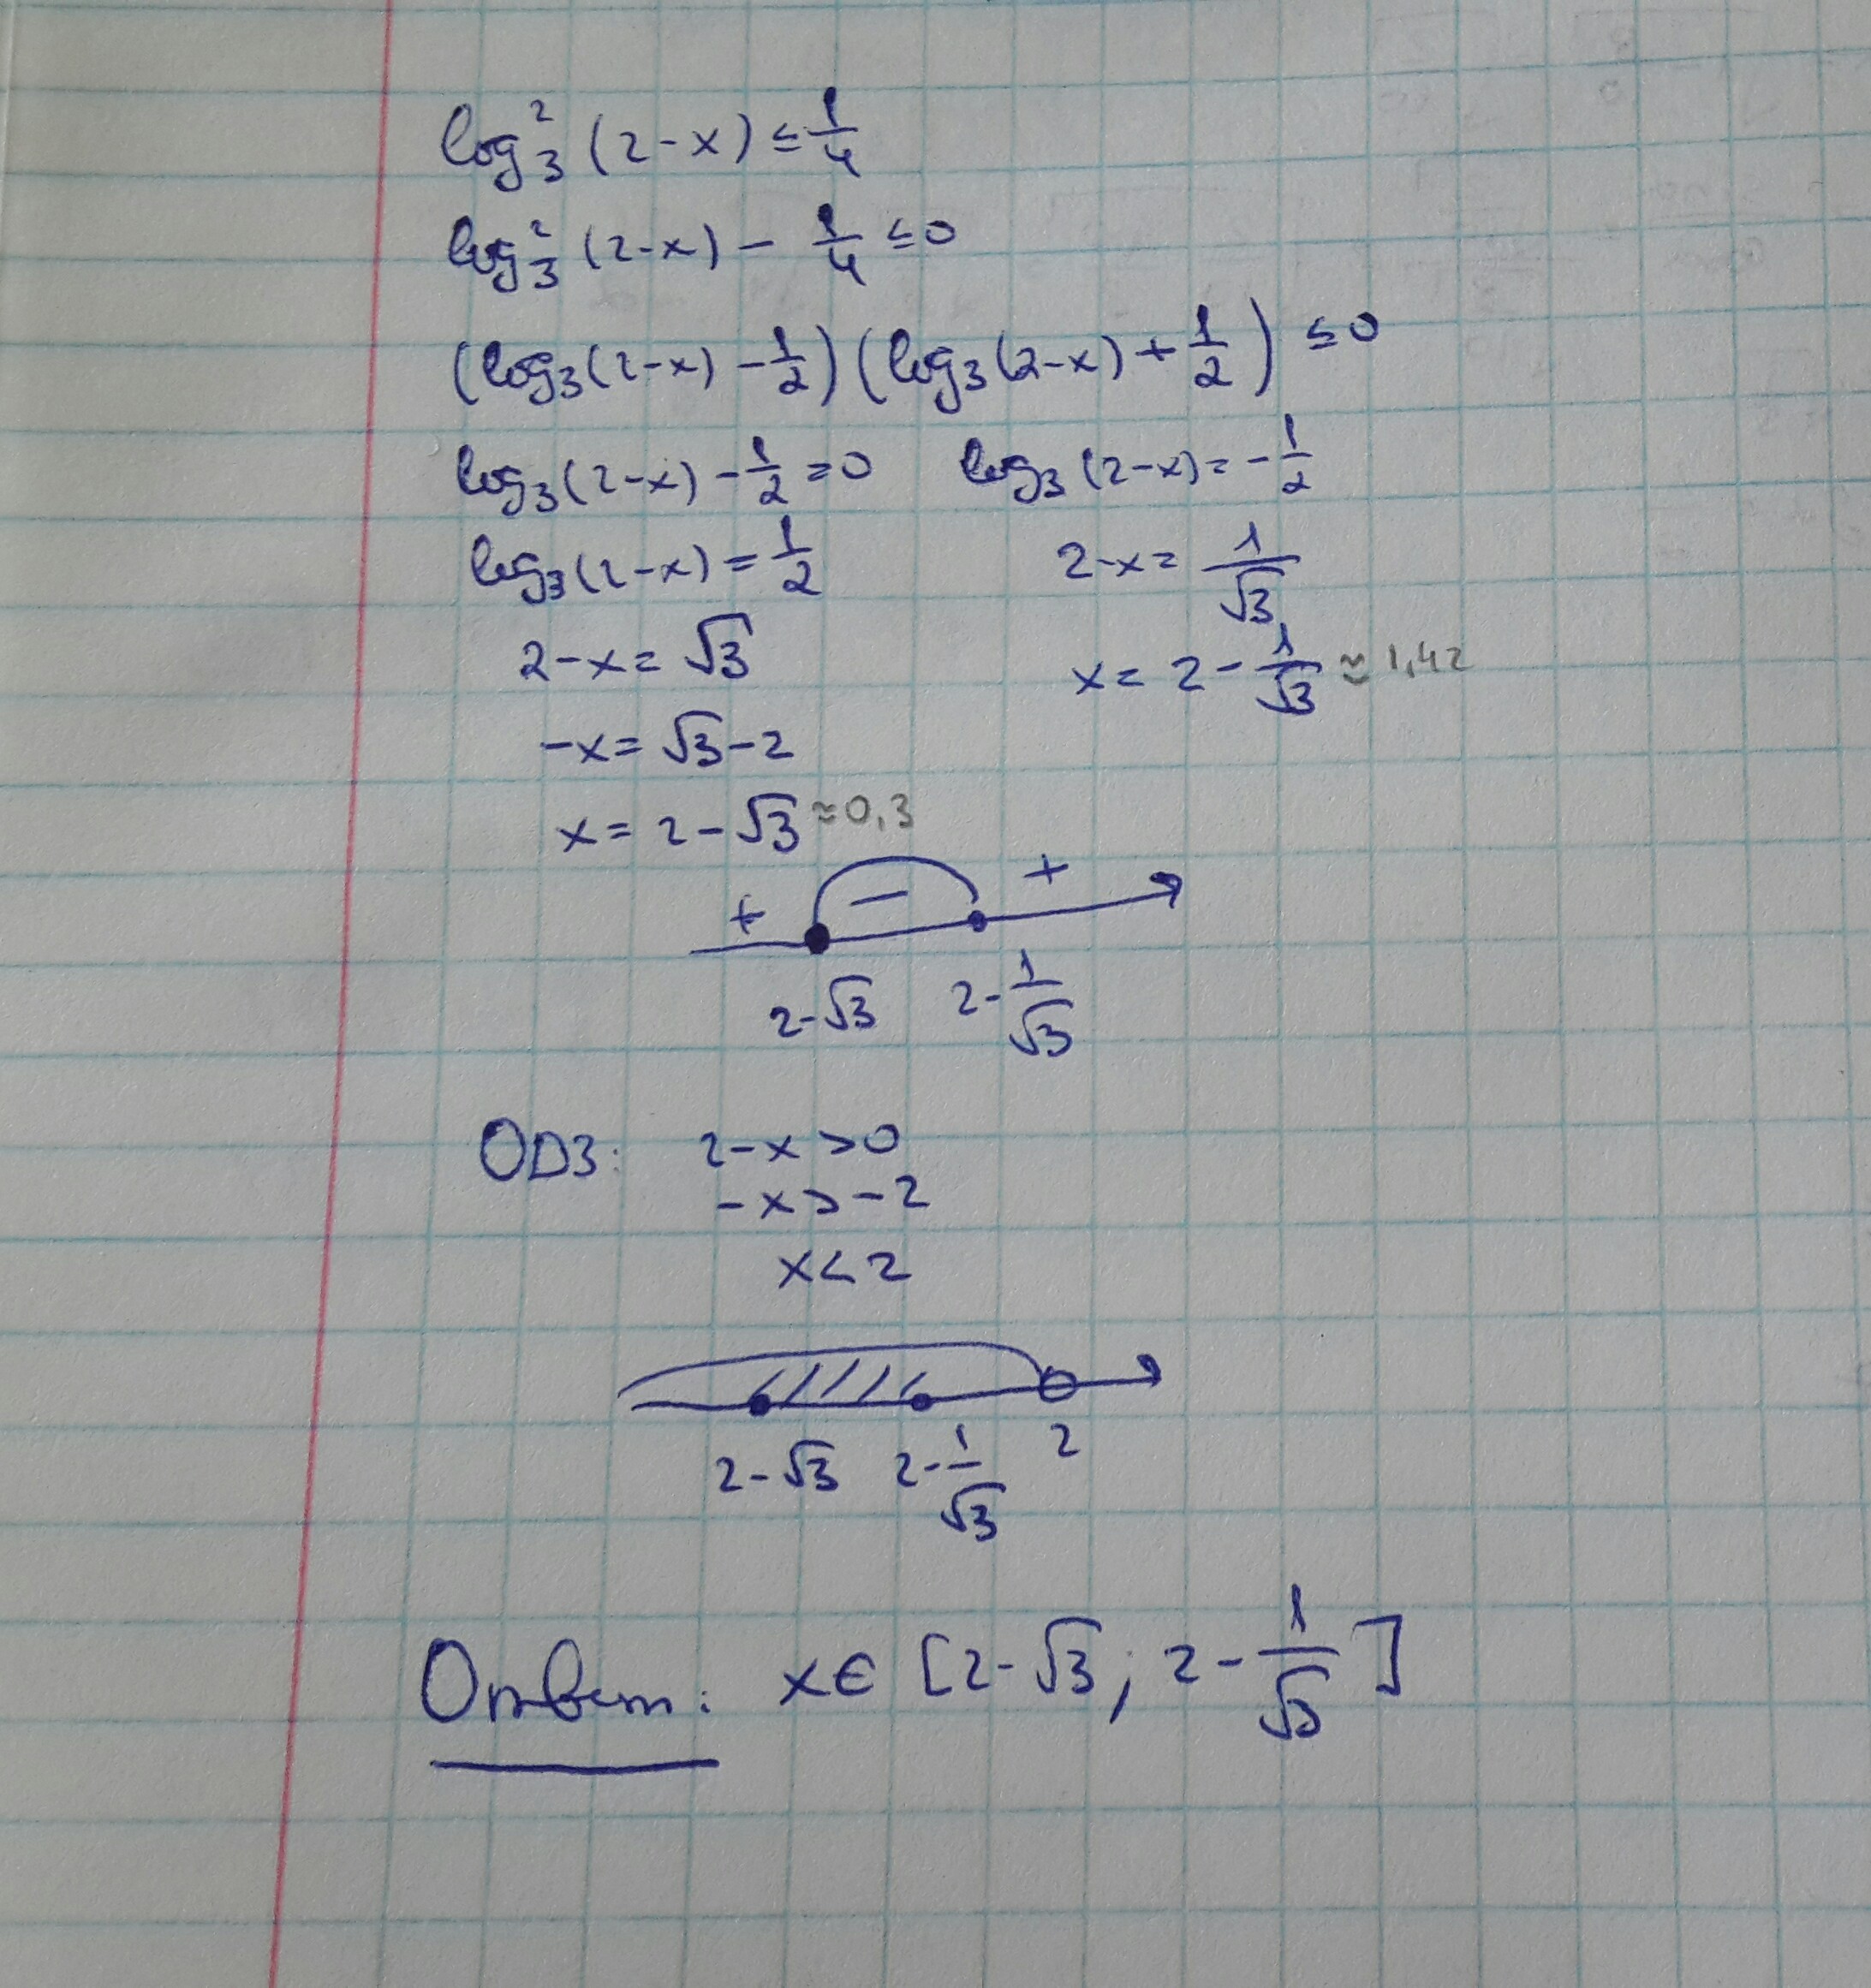 log₃²(2-x) ≤ 1/4
log₃²(2-x) - 1/4 ≤ 0
(log₃(2-x) - 1/2)(log₃(2-x) + 1/2) ≤ 0
log₃(2-x) - 1/2 = 0 log₃(2-x) = -1/2
log₃(2-x) = 1/2 2-x = 1/√3
2-x = √3 x = 2 - 1/√3 ≈ 1,42
-x = √3 - 2
x = 2 - √3 ≈ 0,3
+ − +
2-√3 2-1/√3
ОДЗ: 2-x > 0
-x > -2
x < 2
2-√3 2-1/√3 2
Ответ: x ∈ [2-√3; 2-1/√3]